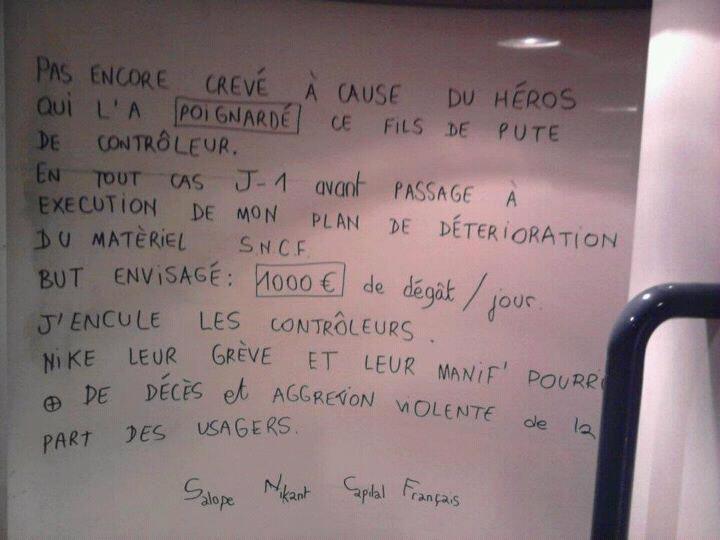 PAS ENCORE CREVÉ À CAUSE DU HÉROS
QUI L'A POIGNARDÉ CE FILS DE PUTE
DE CONTRÔLEUR.
EN TOUT CAS J-1 avant PASSAGE À
EXECUTION DE MON PLAN DE DÉTERIORATION
DU MATÈRIEL S.N.C.F.
BUT ENVISAGÉ: 1000€ de dégât/jour.
J'ENCULE LES CONTRÔLEURS.
NIKE LEUR GRÈVE ET LEUR MANIF' POURRI
⊕ DE DÉCÈS et AGGRETION VIOLENTE de la
PART DES USAGERS.
Salope Nikant Capital Français